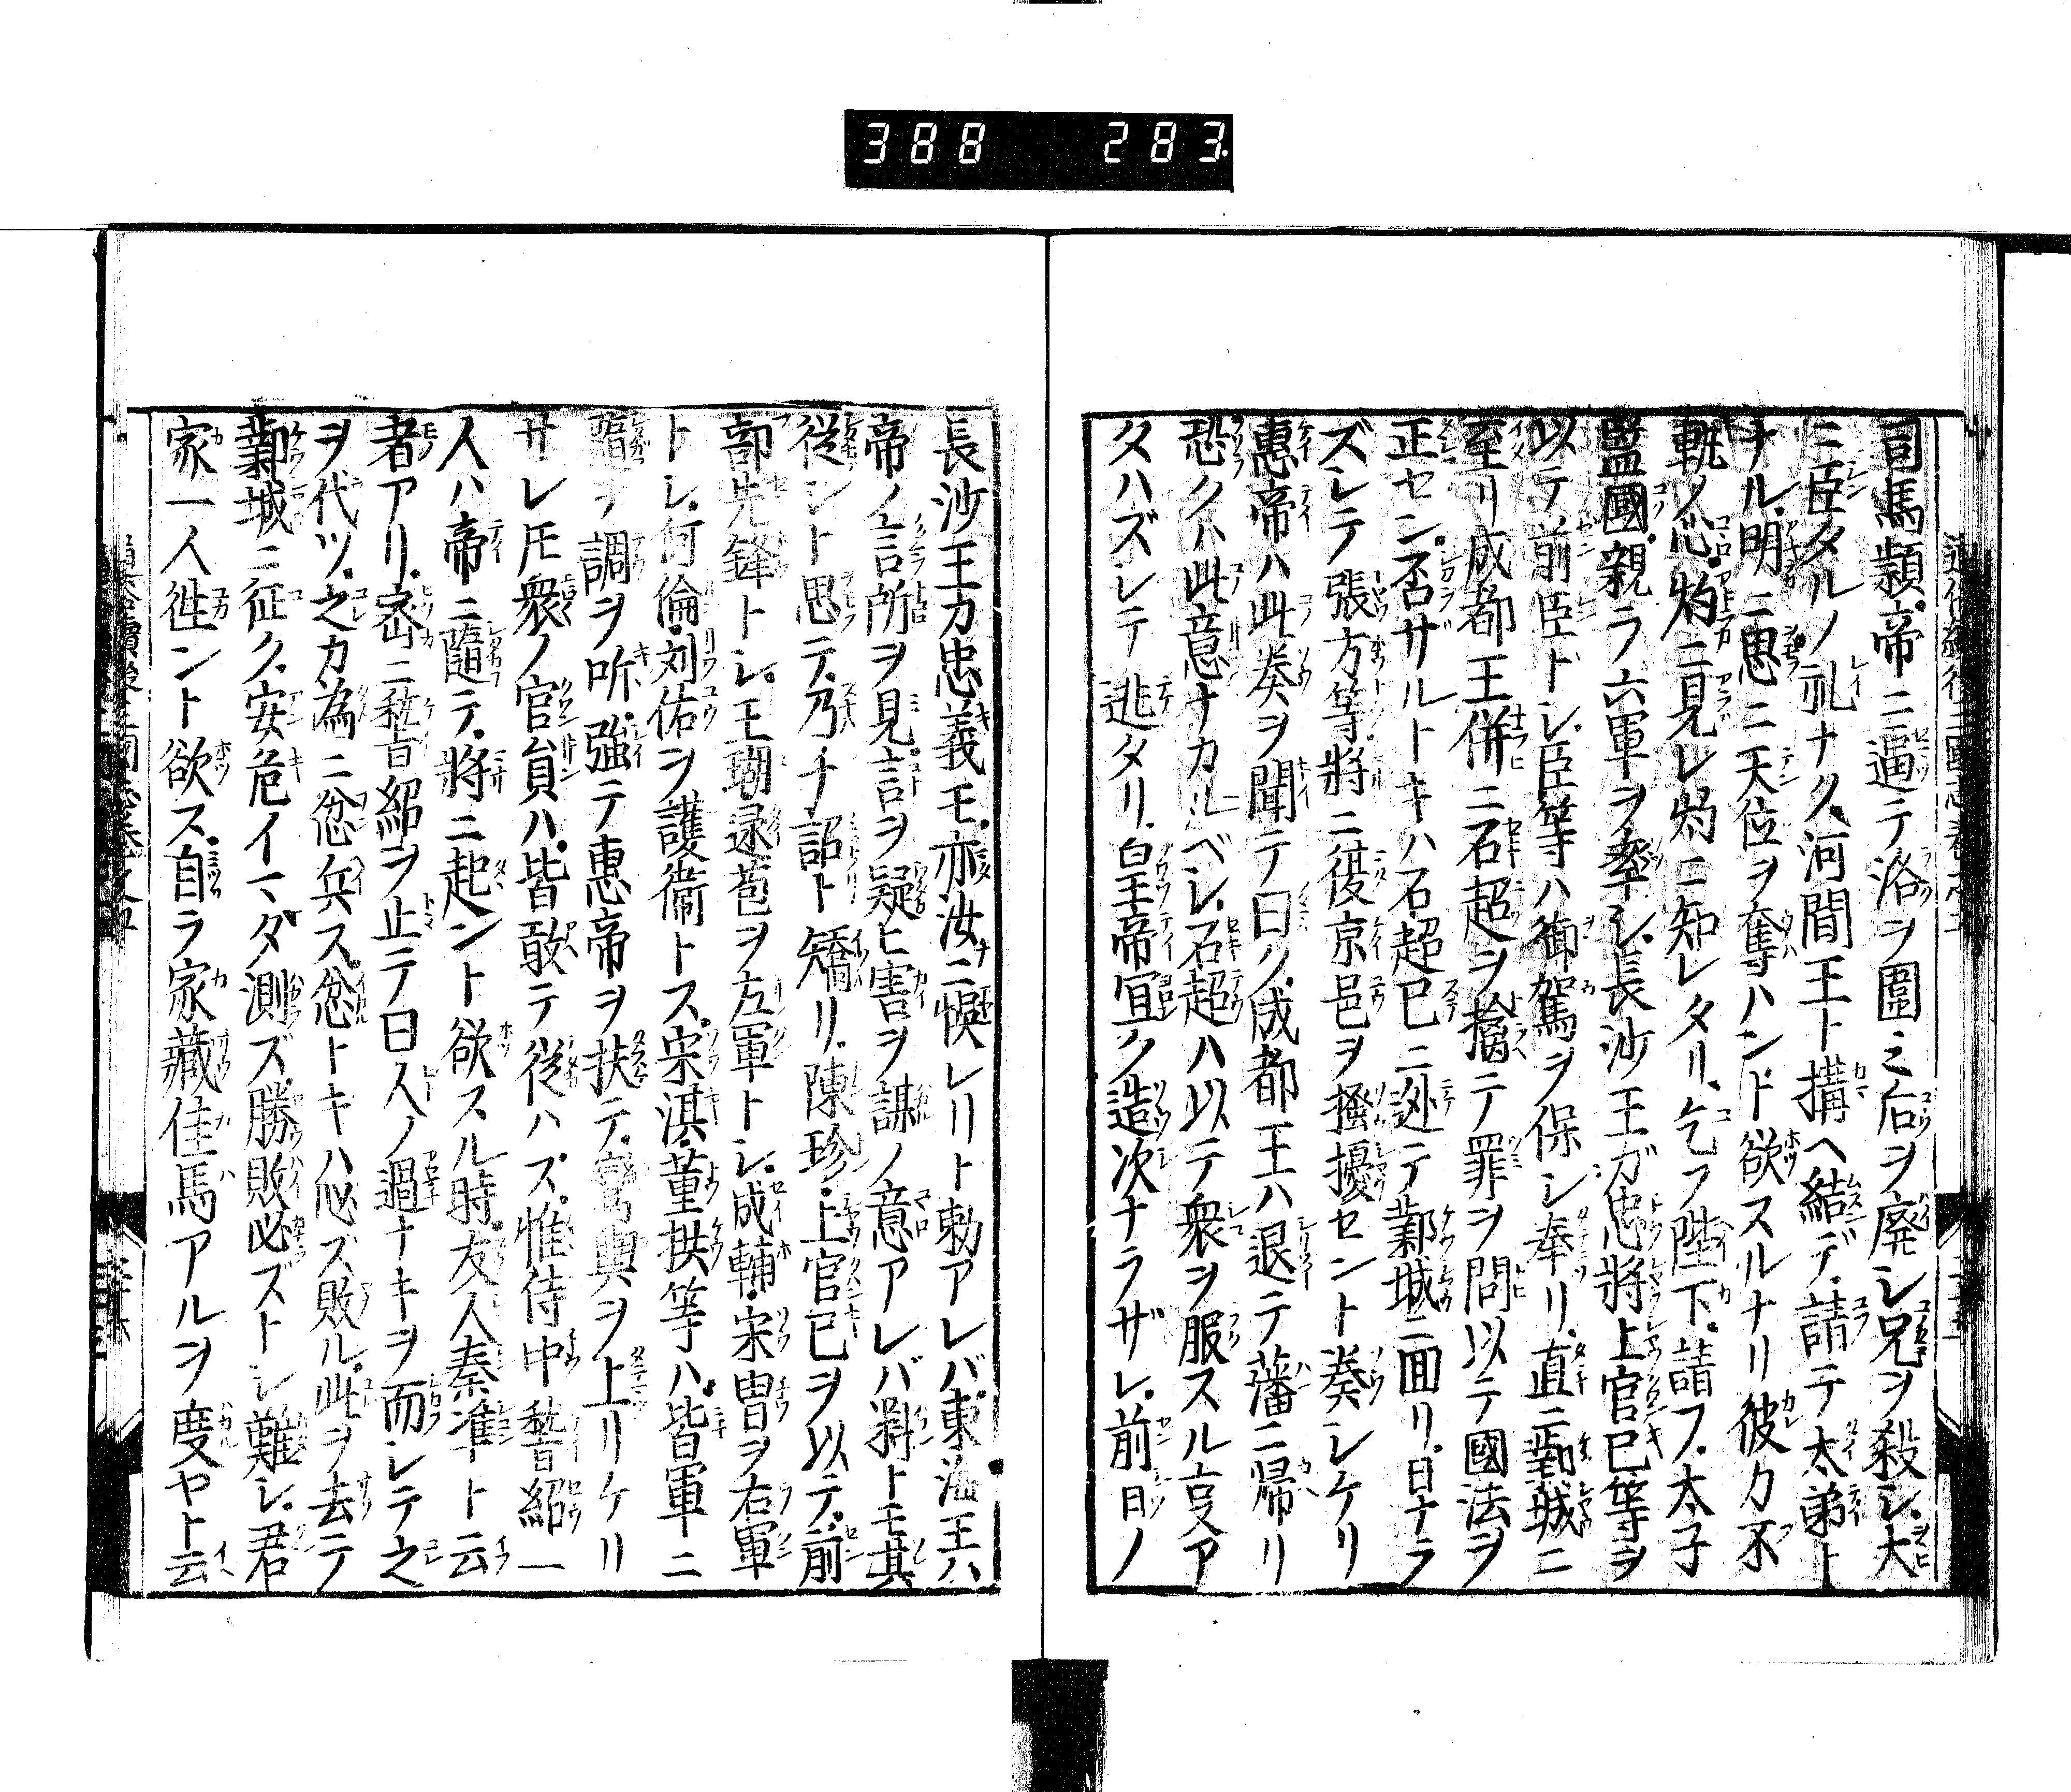 388 283.
司馬頴帝ニ逼テ洛ヲ圍ミ后ヲ廃シ兄ヲ殺シ大
ニ臣タルノ礼ナク河間王ト搆ヘ結デ請テ太弟ト
ナル明ニ思ニ天位ヲ奪ハンド欲スルナリ彼カ不
軌ノ心灼ニ見レ灼ニ知レタリ乞フ陛下請フ太子
監國親ラ六軍ヲ率シ長沙王ガ忠將上官巳等ヲ
以テ前臣トシ臣等ハ御駕ヲ保シ奉リ直ニ鄴城ニ
至リ成都王併ニ石超ヲ擒テ罪ヲ問以テ國法ヲ
正セン否ザルトキハ石超已ニ逃テ鄴城ニ回リ日ナラ
ズシテ張方等將ニ復京邑ヲ搔擾セント奏シケリ
惠帝ハ此奏ヲ聞テ曰ク成都王ハ退テ藩ニ帰リ
恐クハ此意ナカルベシ石超ハ以テ衆ヲ服スル㕝ア
タハズシテ逃タリ皇帝宜ク造次ナラザレ前日ノ
長沙王カ忠義モ亦汝ニ悞レリト勅アレバ東海王ハ
帝ノ言所ヲ見言ヲ疑ヒ害ヲ謀ノ意アレバ斈トモ其
従シト思テ乃チ詔ト矯リ陳珍上官巳ヲ以テ前
部先鋒トシ王瑚逯苞ヲ左軍トシ成輔宋冑ヲ右軍
トシ何倫刘佑ヲ護衛トス宋淇董拱等ハ皆軍ニ
調ヲ听強テ惠帝ヲ扶テ鸞輿ヲ上リケリ
サレ𪜈衆ノ官貟ハ皆敢テ従ハス惟侍中嵆紹一
人ハ帝ニ隨テ將ニ起ント欲スル時友人秦準ト云
者アリ密ニ嵆紹ヲ止テ曰人ノ過ナキヲ而シテ之
ヲ代ツ之カ為ニ忿兵ス忿トキハ必ズ敗ル此ヲ去テ
鄴城ニ征ク安危イマダ測ズ勝敗必ズトシ難シ君
家一人徃ント欲ス自ラ家藏佳馬アルヲ度ヤト云